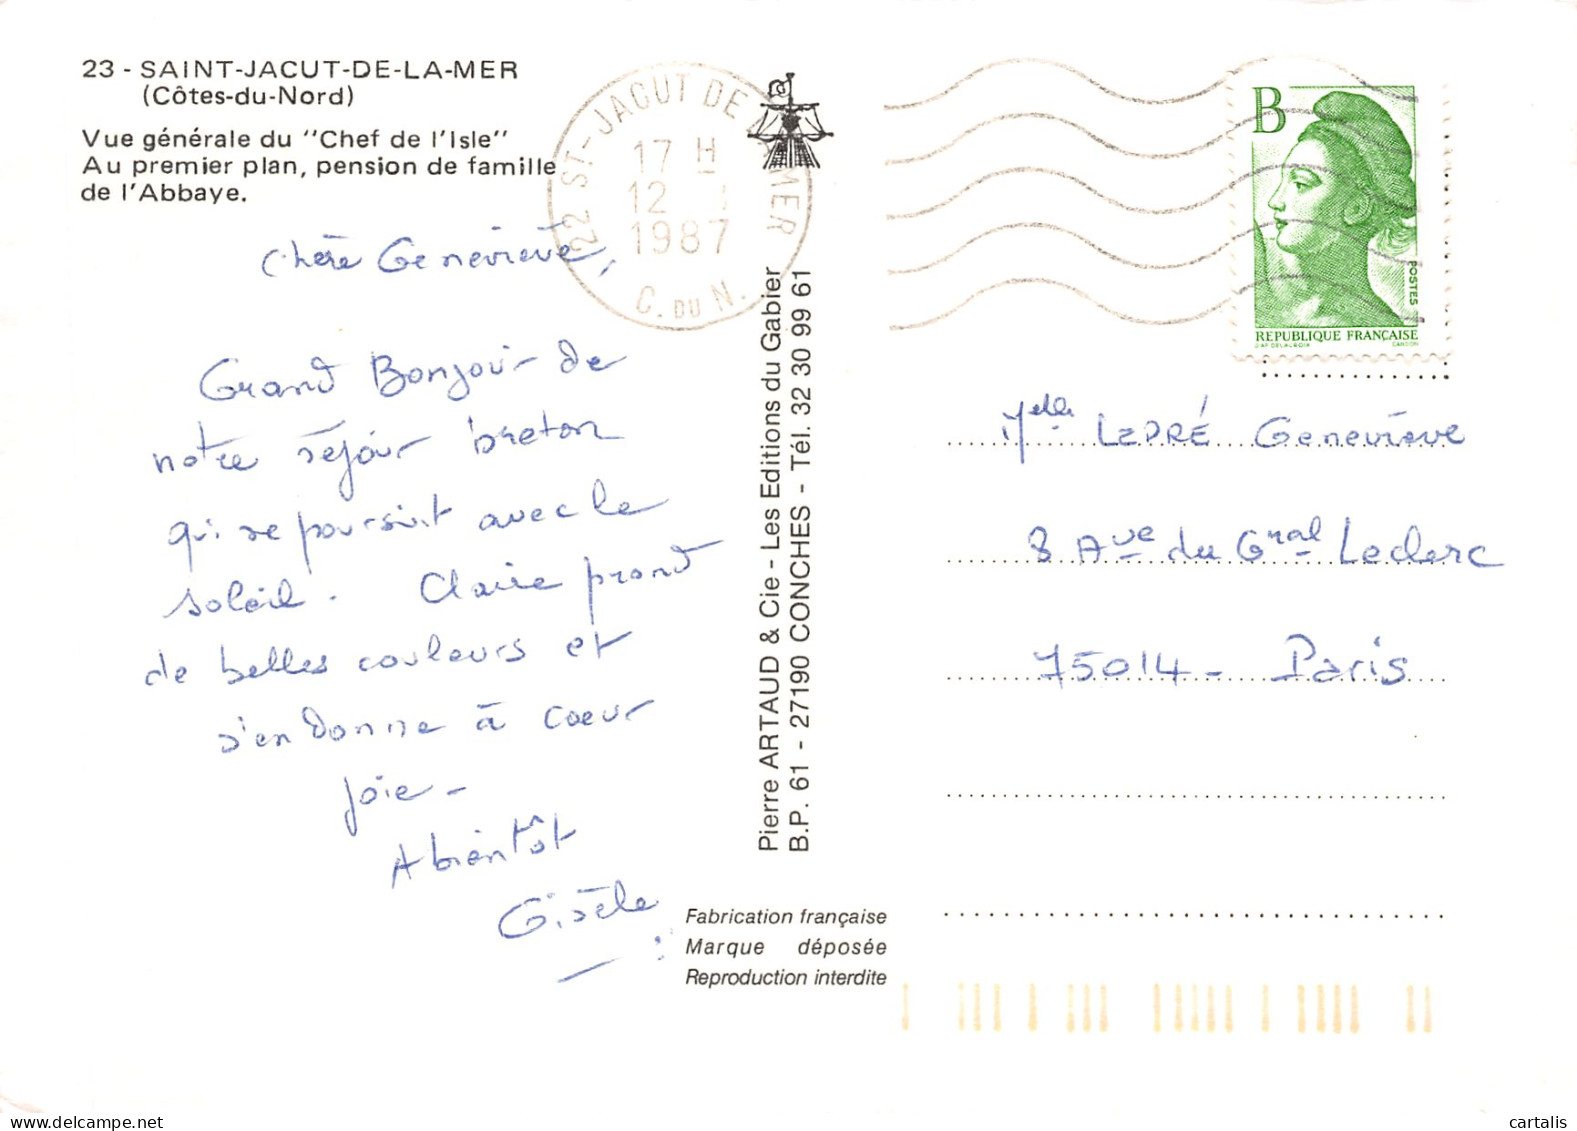 23 - SAINT-JACUT-DE-LA-MER
(Côtes-du-Nord)
Vue générale du "Chef de l'Isle"
Au premier plan, pension de famille
de l'Abbaye.
22 ST-JACUT DE LA MER
17 H
12
1987
C. DU N.
Chère Geneviève,
Grand Bonjour de
notre séjour breton
qui se poursuit avec le
soleil. Claire prend
de belles couleurs et
s'en donne à coeur
joie -
A bientôt
Gisèle
Pierre ARTAUD & Cie - Les Editions du Gabier
B.P. 61 - 27190 CONCHES - Tél. 32 30 99 61
Fabrication française
Marque déposée
Reproduction interdite
B
POSTES
REPUBLIQUE FRANÇAISE
D'AP. DELACROIX GANDON
Melle LEDRÉ Geneviève
8 Ave du Gral Leclerc
75014 - Paris
cartalis